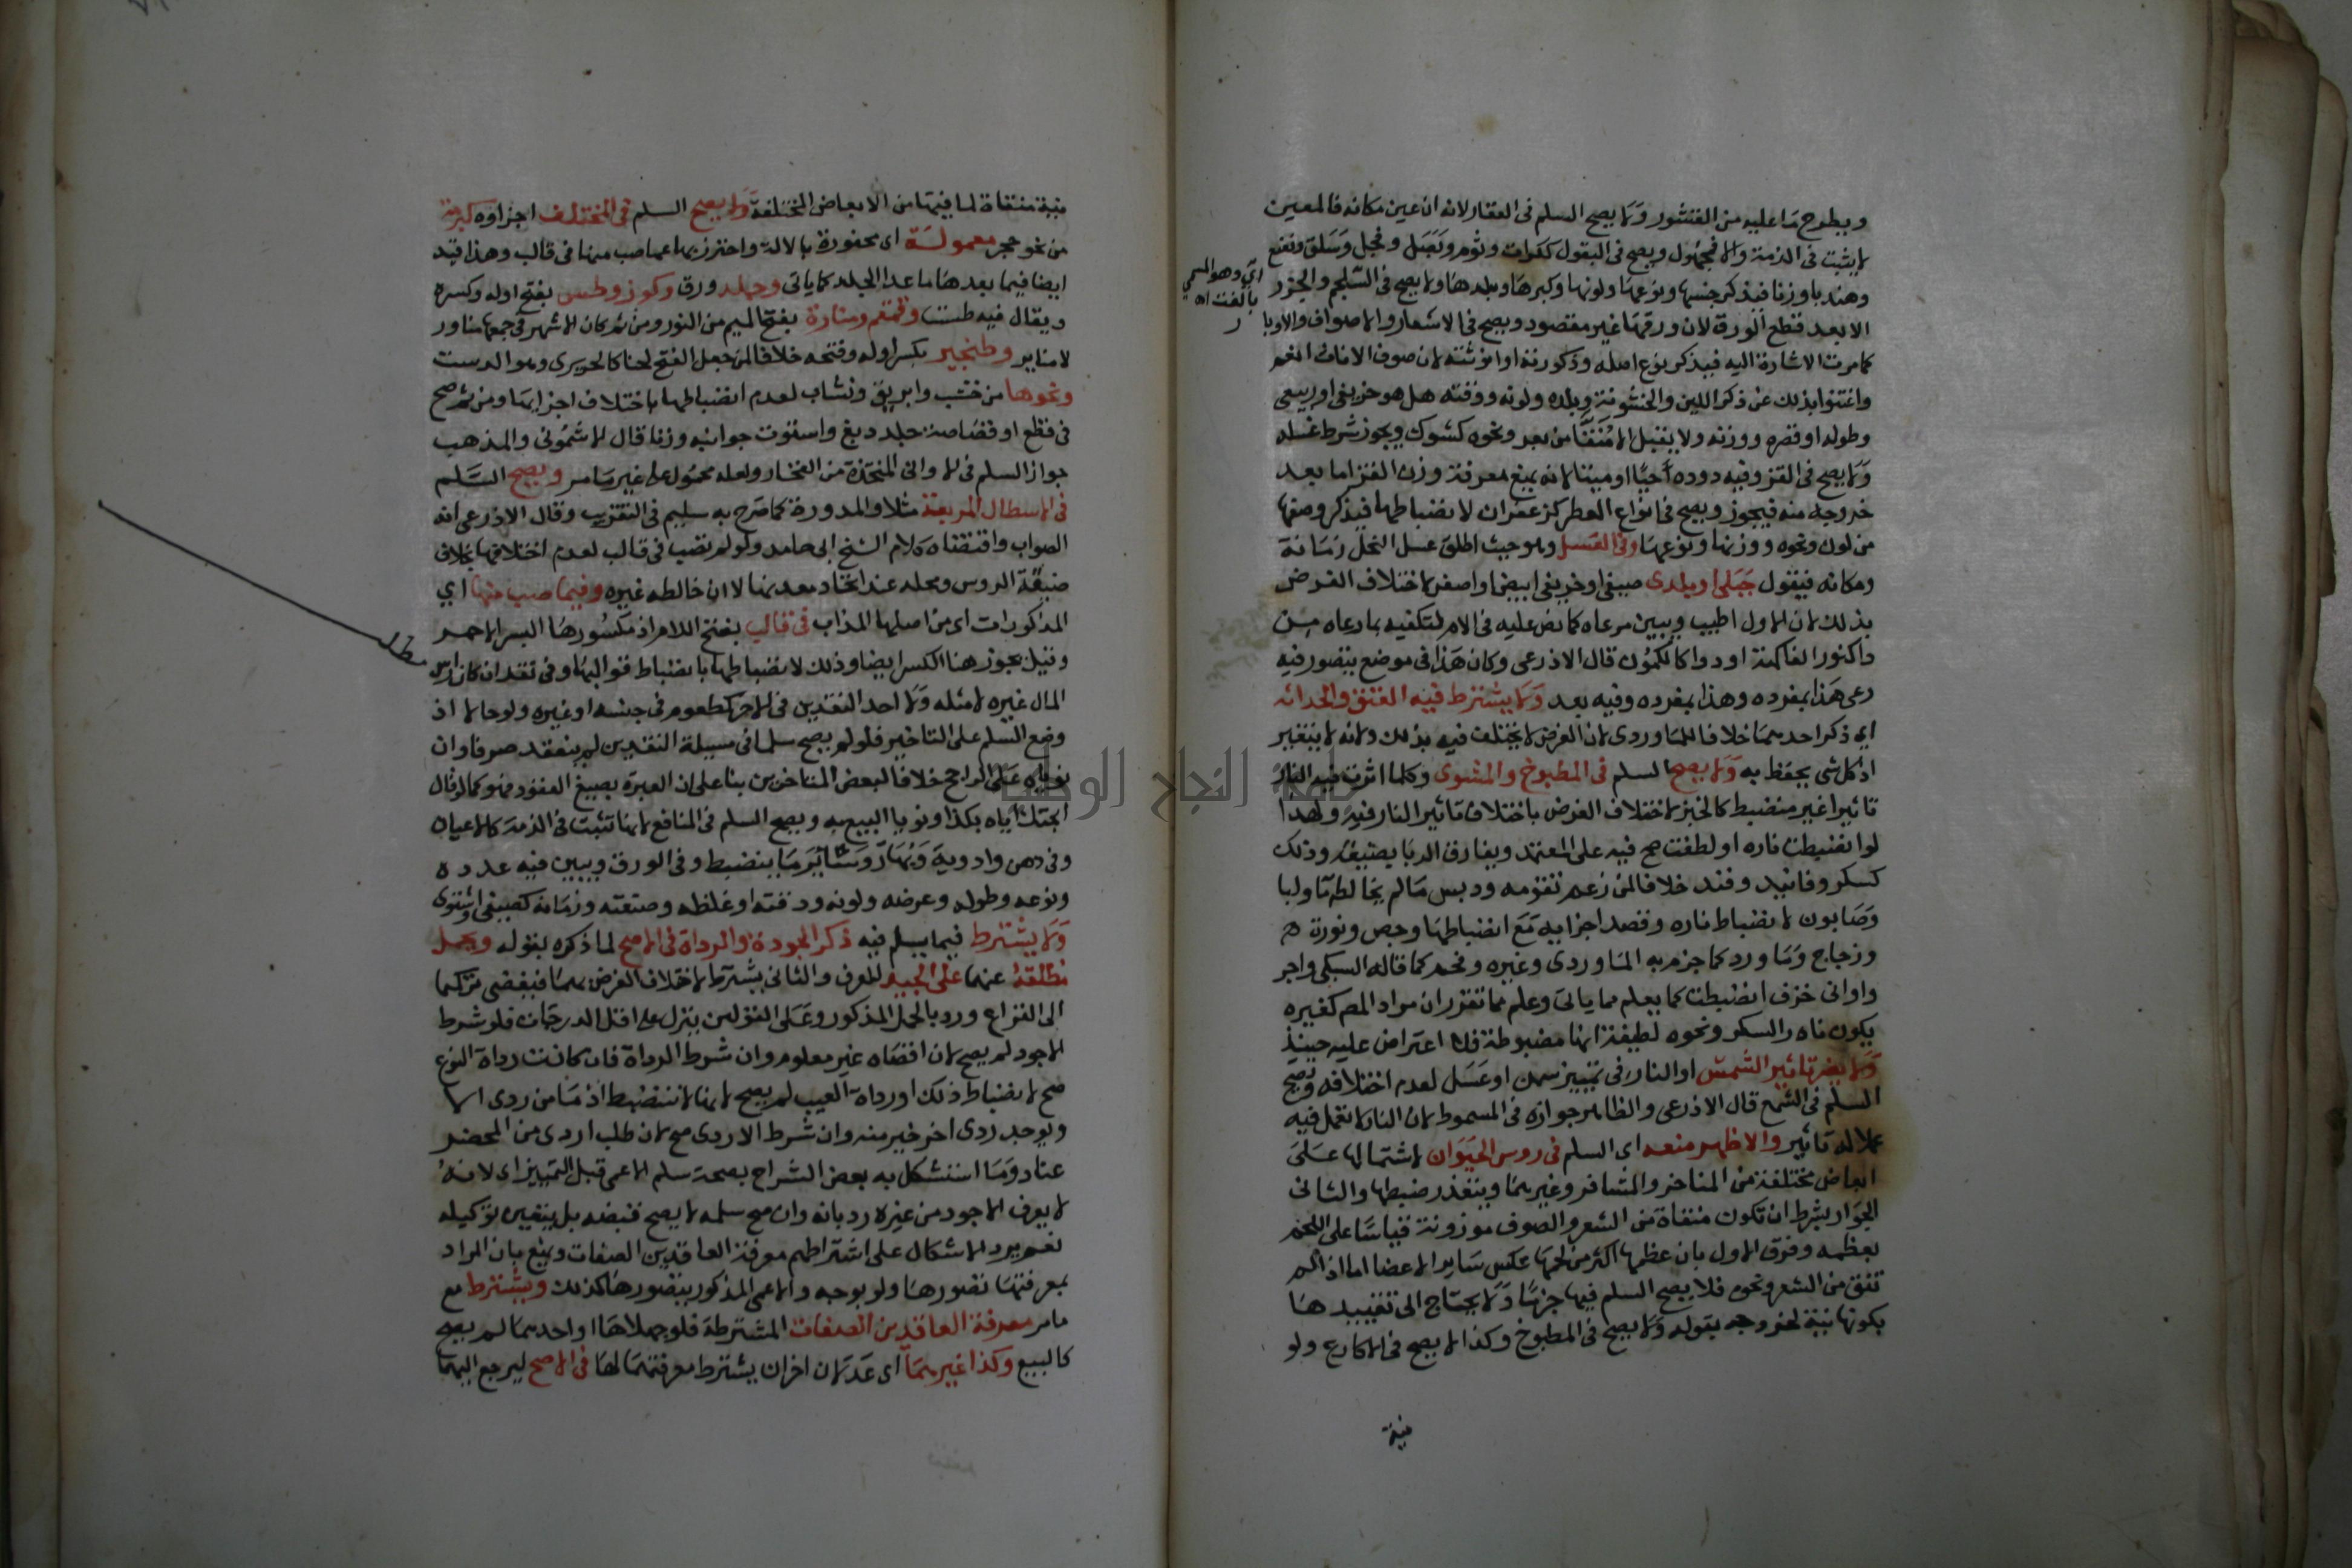 ويطرح ما عليه من القشور ولا يصح السلم فى العقار لانه ان عين مكانه فالمعين
لا يثبت فى الذمة والا فمجهول ويصح فى البقول ككرات وثوم وبصل وفجل وسلق ونعنع
وهندبا وزنا فيذكر جنسها ونوعها ولونها وكبرها وبلدها ولا يصح فى السلجم والجزر
اي وهو المسمى
بالفت اه
الا بعد قطع الورق لان ورقها غير مقصود ويصح فى الاشعار والاصواف والاوبا
كما مرت الاشارة اليه فيذكر نوع اصله وذكورته او انوثته لان صوف الاناث انعم
واغتنوا بذلك عن ذكر اللين والخشونة وبلده ولونه ووقته هل هو خريفى او ربيعى
وطوله او قصره ووزنه ولا يقبل الا مُنَقًّا من بعر ونحوه كشوك ويجوز شرط غسله
ولا يصح فى القز وفيه دوده أحيًّا او ميتا لانه يمنع معرفة وزن القز اما بعد
خروجه منه فيجوز ويصح فى انواع العطر كزعفران لانضباطها فيذكر وصفها
من لون ونحوه ووزنها ونوعها وفى العسل وهو حيث اطلق عسل النحل زمانه
ومكانه فيقول جبلى او بلدى صيفى او خريفى ابيض او اصفر لاختلاف الغرض
بذلك لان الاول اطيب ويبين مرعاه كما نص عليه فى الام لتكفيه بما رعاه من
دا كنور الفاكهة او دوا كالكمون قال الاذرعى وكان هذا فى موضع يتصور فيه
رعى هذا بمفرده وهذا بمفرده وفيه بعد ولا يشترط فيه العتق والحداثه
اي ذكر احدهما خلافا للماوردى لان الغرض لا يختلف فيه بذلك ولانه لا يتغير
اذ كل شى يحفظ به ولا يصح السلم فى المطبوخ والمشوى وكلما اثرت فيه النار
تاثيرا غير منضبط كالخبز لاختلاف الغرض باختلاف تاثير النار فيه ولهذا
لو انضبطت ناره او لطفت صح فيه على المعتمد ويفارق الربا بضيقه وذلك
كسكر وفانيد وقند خلافا لمن زعم تقومه ودبس مالم يخالطه ما ولبا
وصابون لانضباط ناره وقصد اجزايه مع انضباطها وجص ونورة
وزجاج وما ورد كما جزم به الماوردى وغيره وفحم كما قاله السبكى واجر
واوانى خزف انضبطت كما يعلم مما ياتى وعلم مما تقرر ان مراد المص كغيره
بكون نار السكر ونحوه لطيفة انها مضبوطة فلا اعتراض عليه حينيذ
ولا يضر تاثير الشمس او النار فى تمييز سمن او عسل لعدم اختلافه ويصح
السلم فى الشمع قال الاذرعى والظاهر جوازه فى المسموط لان النار لا تعمل فيه
عملا له تاثير والاظهر منعه اى السلم فى روس الحيوان لاشتمالها على
ابعاض مختلفة من المناخر والمشافر وغيرهما ويتعذر ضبطها والثانى
الجواز بشرط ان تكون منقاة من الشعر والصوف موزونة قياسا على اللحم
بعظمه وفرق الاول بان عظمها اكثر من لحمها عكس ساير الاعضا اما اذا لم
تنق من الشعر ونحوه فلا يصح السلم فيها جزما ولا يحتاج الى تقييدها
بكونها نية لخروجه بقوله ولا يصح فى المطبوخ وكذا لا يصح فى الاكارع ولو
نية
نية منقاة لما فيها من الابعاض المختلفة ولا يصح السلم فى المختلف اجزاوه كبرمة
من نحو حجر معمولة اى محفورة بالالة واحترز بها عما صب منها فى قالب وهذا قيد
ايضا فيما بعدها ما عدا الجلد كما ياتى وجلد ورق وكوز وطس بفتح اوله وكسره
ويقال فيه طست وقمقم ومنارة بفتح الميم من النور ومن ثم كان الاشهر فى جمعها مناور
لا مناير وطنجير بكسر اوله وفتحه خلافا لمن جعل الفتح لحنا كالحريرى وهو الدست
ونحوها من خشب وابريق ونشاب لعدم انضباطها باختلاف اجزايها ومن ثم صح
فى قطع او قصاصة جلد دبغ واستوت جوانبه وزنا قال الاشمونى والمذهب
جواز السلم فى الاوانى المتخذة من الفخار ولعله محمول على غير ما مر ويصح السلم
فى الاسطال المربعة مثلا والمدورة كما صرح به سليم فى التقريب وقال الاذرعى انه
الصواب واقتضاه كلام الشيخ ابى حامد ولو لم تصب فى قالب لعدم اختلافها بخلاف
ضيقة الروس ومحله عند اتحاد معدنها لا ان خالطه غيره وفيما صب منها اي
المذكورات اى من اصلها المذاب فى قالب بفتح اللام اذ مكسورها البسر الاحمر
وقيل يجوز هنا الكسر ايضا وذلك لانضباطها بانضباط قوالبها وفى نقد ان كان راس
مط
المال غيره لا مثله ولا احد النقدين فى الاخر كمطعوم فى جنسه او غيره ولو حالا اذ
وضع السلم على التاخير فلو لم يصح سلما فى مسيلة النقدين لم ينعقد صرفا وان
نوياه على الراجح خلافا لبعض المتاخرين بنا على ان العبرة بصيغ العقود فهو كما لو قال
اجرتك اياه بكذا ونويا البيع به ويصح السلم فى المنافع لانها تثبت فى الذمة كالاعيان
وفى دهن وادوية وبهار وساير ما ينضبط وفى الورق ويبين فيه عدده
ونوعه وطوله وعرضه ولونه ودقته او غلظه وصنعته وزمانه كصيفى او شتوى
ولا يشترط فيما يسلم فيه ذكر الجودة والرداة فى الاصح لما ذكره بقوله ويحمل
مطلقه عنهما على الجيد للعرف والثانى يشترط لاختلاف الغرض بهما فيفضى تركهما
الى النزاع ورد بالحمل المذكور وعلى القولين ينزل على اقل الدرجات فلو شرط
الاجود لم يصح لان اقصاه غير معلوم وان شرط الرداة فان كانت رداة النوع
صح لانضباط ذلك او رداة العيب لم يصح لانها لا تنضبط اذ ما من ردى الا
ويوجد ردى اخر خير منه وان شرط الاردى صح لان طلب اردى من المحضر
عناد وما استشكل به بعض الشراح بصحة سلم الاعمى قبل التمييز اى لانه
لا يعرف الاجود من غيره رد بانه وان صح سلمه لا يصح قبضه بل يتعين توكيله
نعم يرد الاشكال على اشتراطهم معرفة العاقدين الصفات ويمنع بان المراد
بمعرفتها تصورها ولو بوجه والاعمى المذكور يتصورها كذلك ويشترط مع
ما مر معرفة العاقدين الصفات المشترطة فلو جهلاها او احدهما لم يصح
كالبيع وكذا غيرهما اى عدلان اخران يشترط معرفتهما لها فى الاصح ليرجع اليهما
جامعة النجاح الوطنية